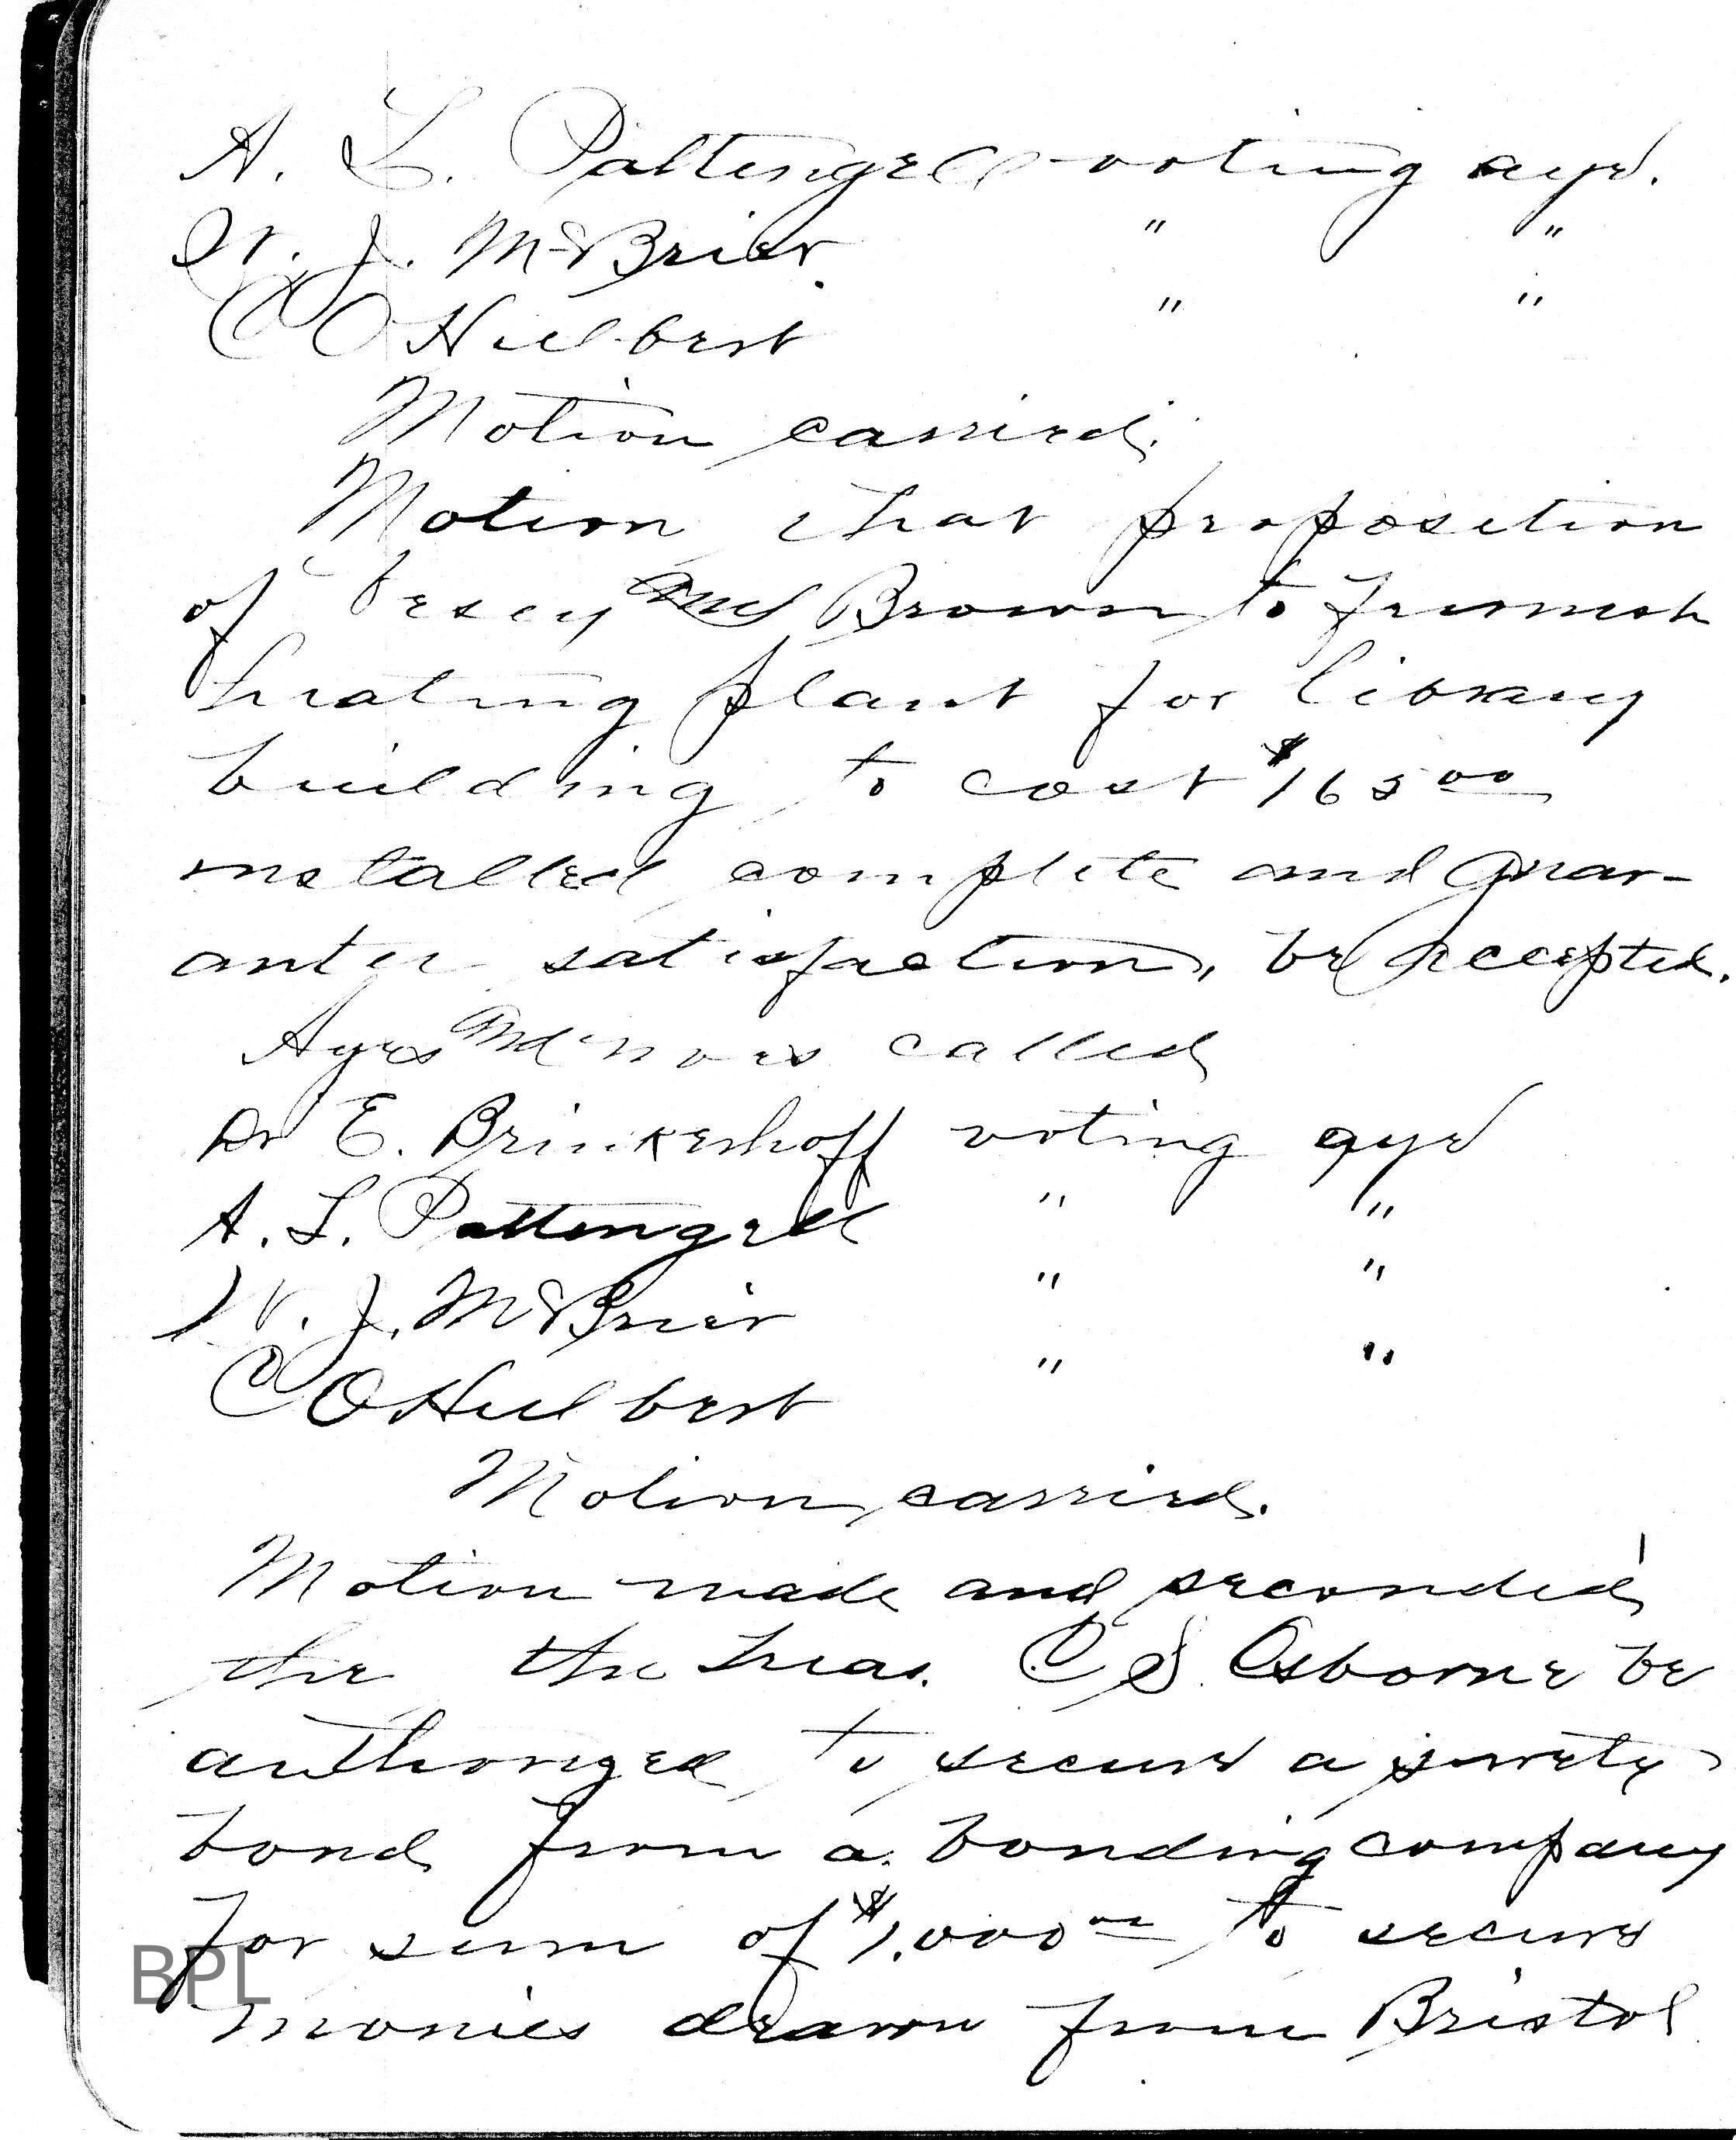 A. L. Pattengell voting aye.
W. J. McBrier " "
C O Hulbert " "
Motion carried.
Motion that proposition
of Vesey and Brown to furnish
heating plant for library
building to cost $165 00
installed complete and guar-
antee satisfaction, be accepted.
Ayes and noes called
Dr E. Brinkerhoff voting aye
A. L. Pattengell " "
W. J. McBrier " "
C O Hulbert " "
Motion carried.
Motion made and seconded
the the treas. C S. Osborne be
authorized to secure a surety
bond from a bonding company
for sum of $1.000 00 to secure
monies drawn from Bristol
BPL